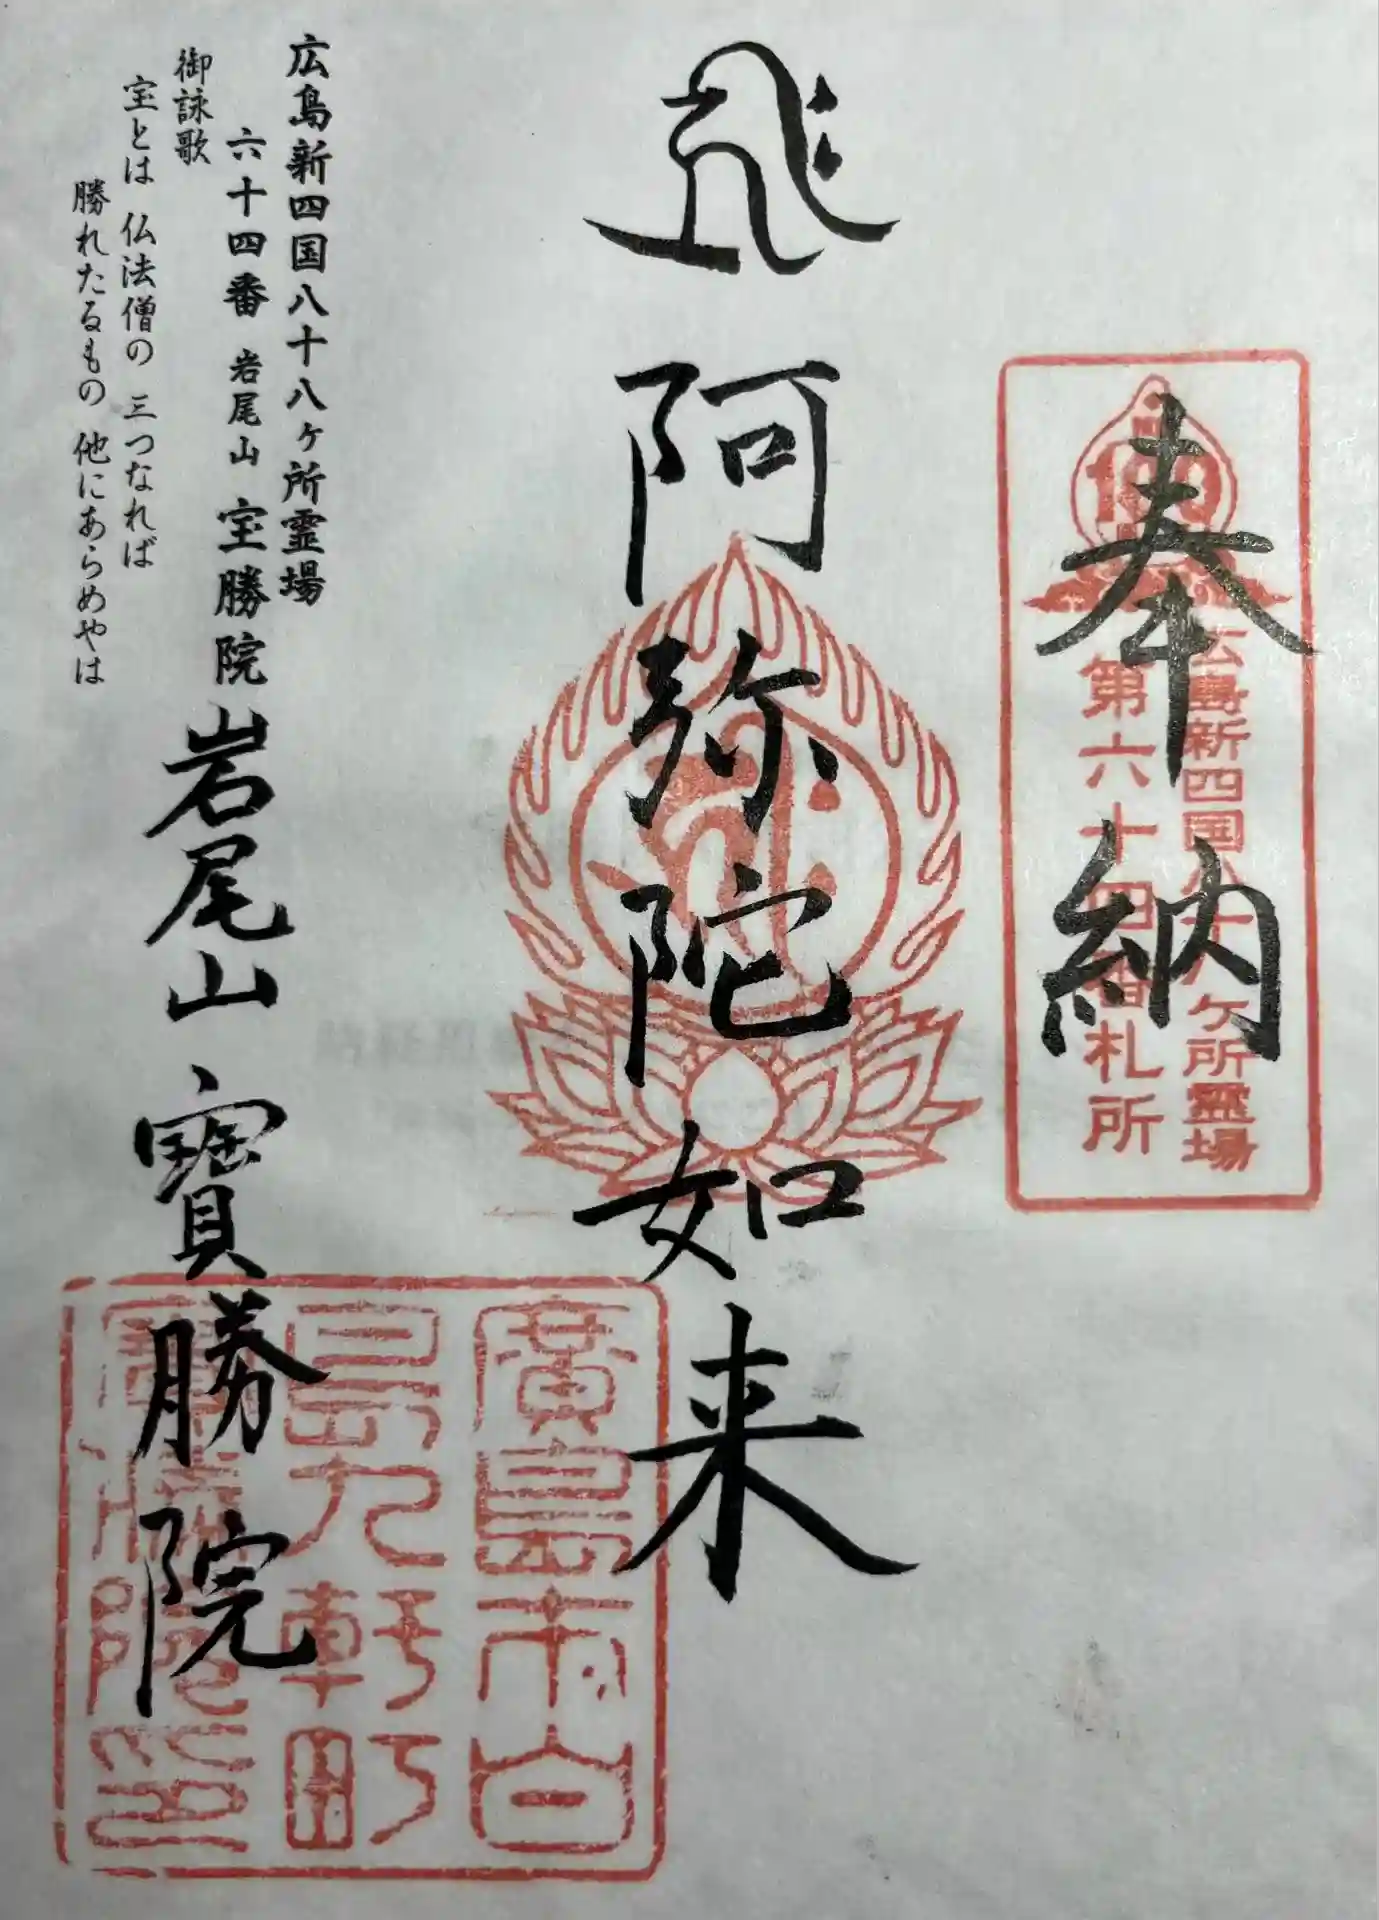 奉納
広島新四国八十八ヶ所霊場
第六十四番札所
阿弥陀如来
広島新四国八十八ヶ所霊場
六十四番 岩尾山 宝勝院
御詠歌
宝とは 仏法僧の 三つなれば
勝れたるもの 他にあらめやは
岩尾山 寳勝院
廣島市白
島九軒町
寳勝院印